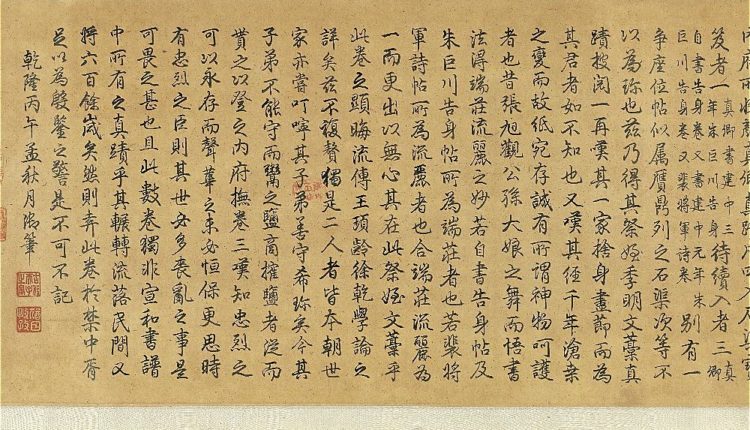 笈者一真卿書建中三年朱巨川告身待續入者三真卿
自書告身卷又書建中元年朱巨川告身卷又裴將軍詩卷別有一
爭座位帖似属贗鼎列之石渠次等不
以為珍也兹乃得其祭姪季明文藁真
蹟披閱一再嘆其一家捨身盡節而為
其君者如不知也又嘆其徑千年滄桒
之變而故紙宛存誠有所謂神物呵護
者也昔張旭觀公孫大娘之舞而悟書
法得端莊流麗之妙若自書告身帖及
朱巨川告身帖所為端莊者也若裴將
軍詩帖所為流麗者也合端莊流麗為
一而更出以無心其在此祭姪文藁乎
此卷之顛晦流傳王頊齡徐乾學論之
詳矣兹不復贅獨是二人者皆本朝世
家亦嘗叮嚀其子弟善守希弥矣今其
子弟不能守而鬻之鹽商榷鹽者從而
貰之以登之内府撫卷三嘆知忠烈之
可以永存而聲華之未必恒保更思時
有忠烈之臣則其世必多喪亂之事是
可畏之甚也且此數卷獨非宣和書譜
中所有之真蹟乎其輾轉流落民間又
將六百餘歲矣然則弆此卷於禁中胥
足以為殷鑒之警是不可不記
乾隆丙午孟秋月御筆